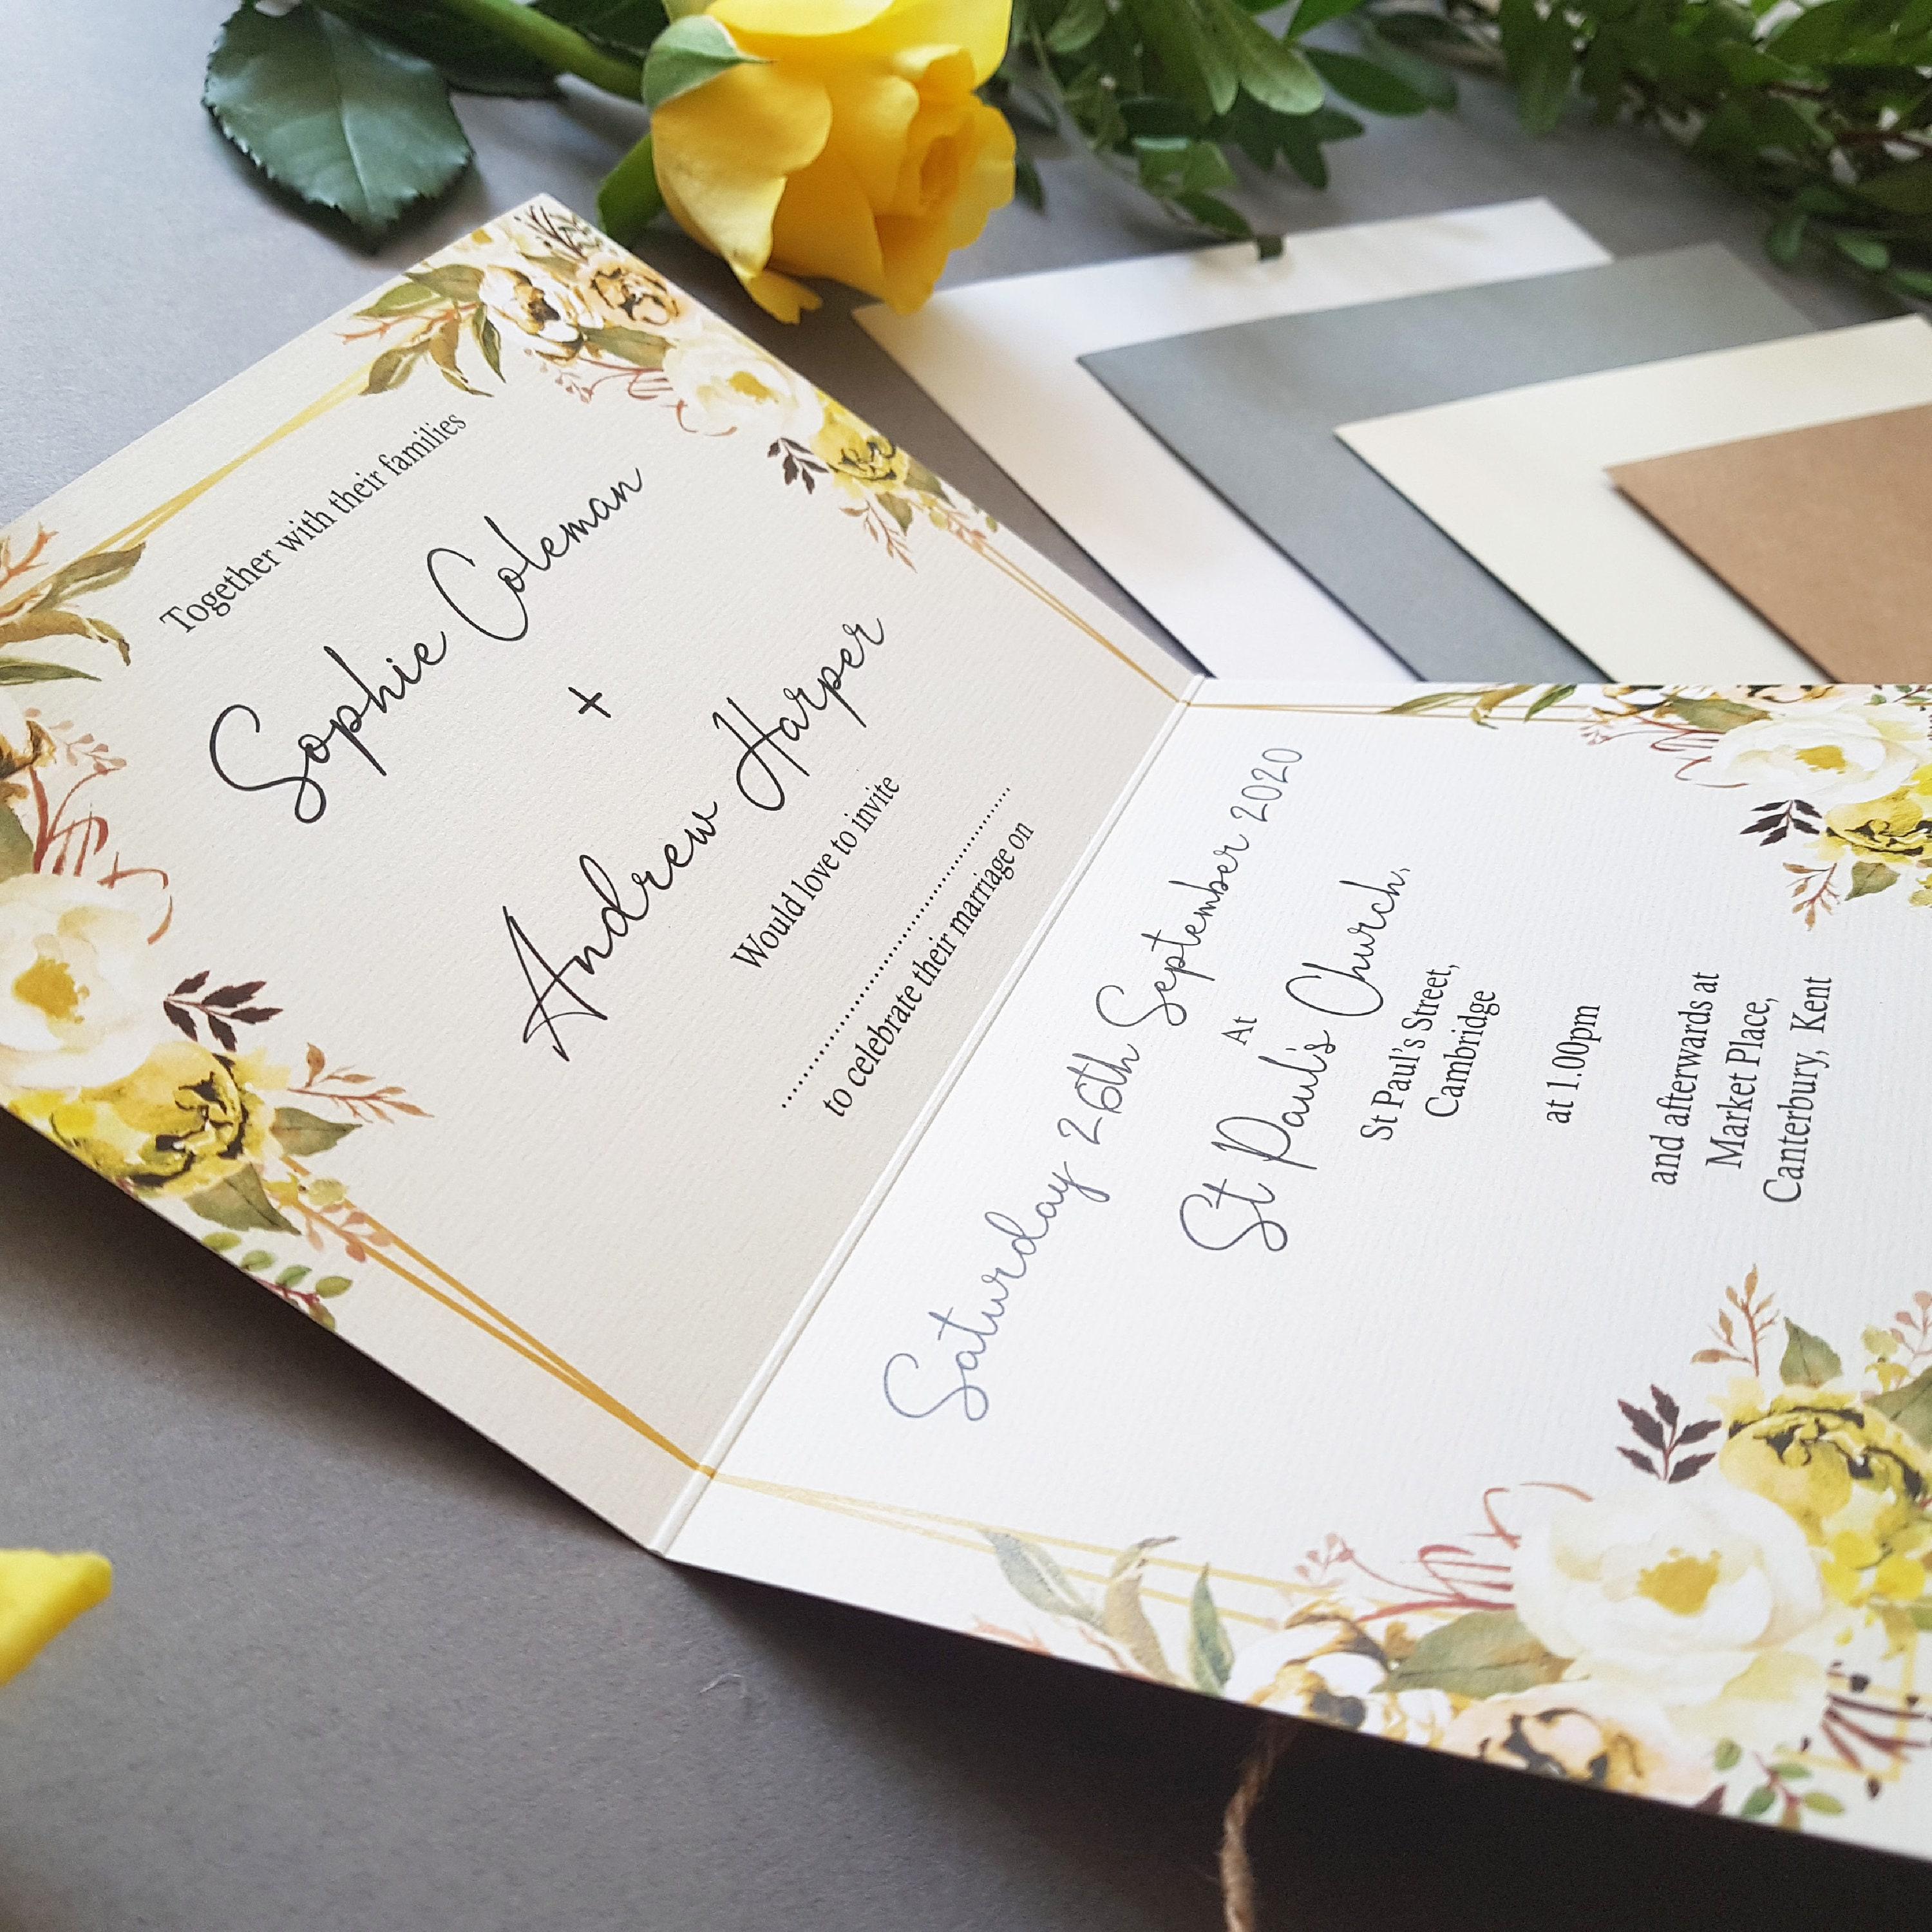 Together with their families
Sophie Coleman
+
Andrew Harper
Would love to invite
................................................
to celebrate their marriage on
Saturday 26th September 2020
At
St Paul's Church,
St Paul's Street,
Cambridge
at 1.00pm
and afterwards at
Market Place,
Canterbury, Kent